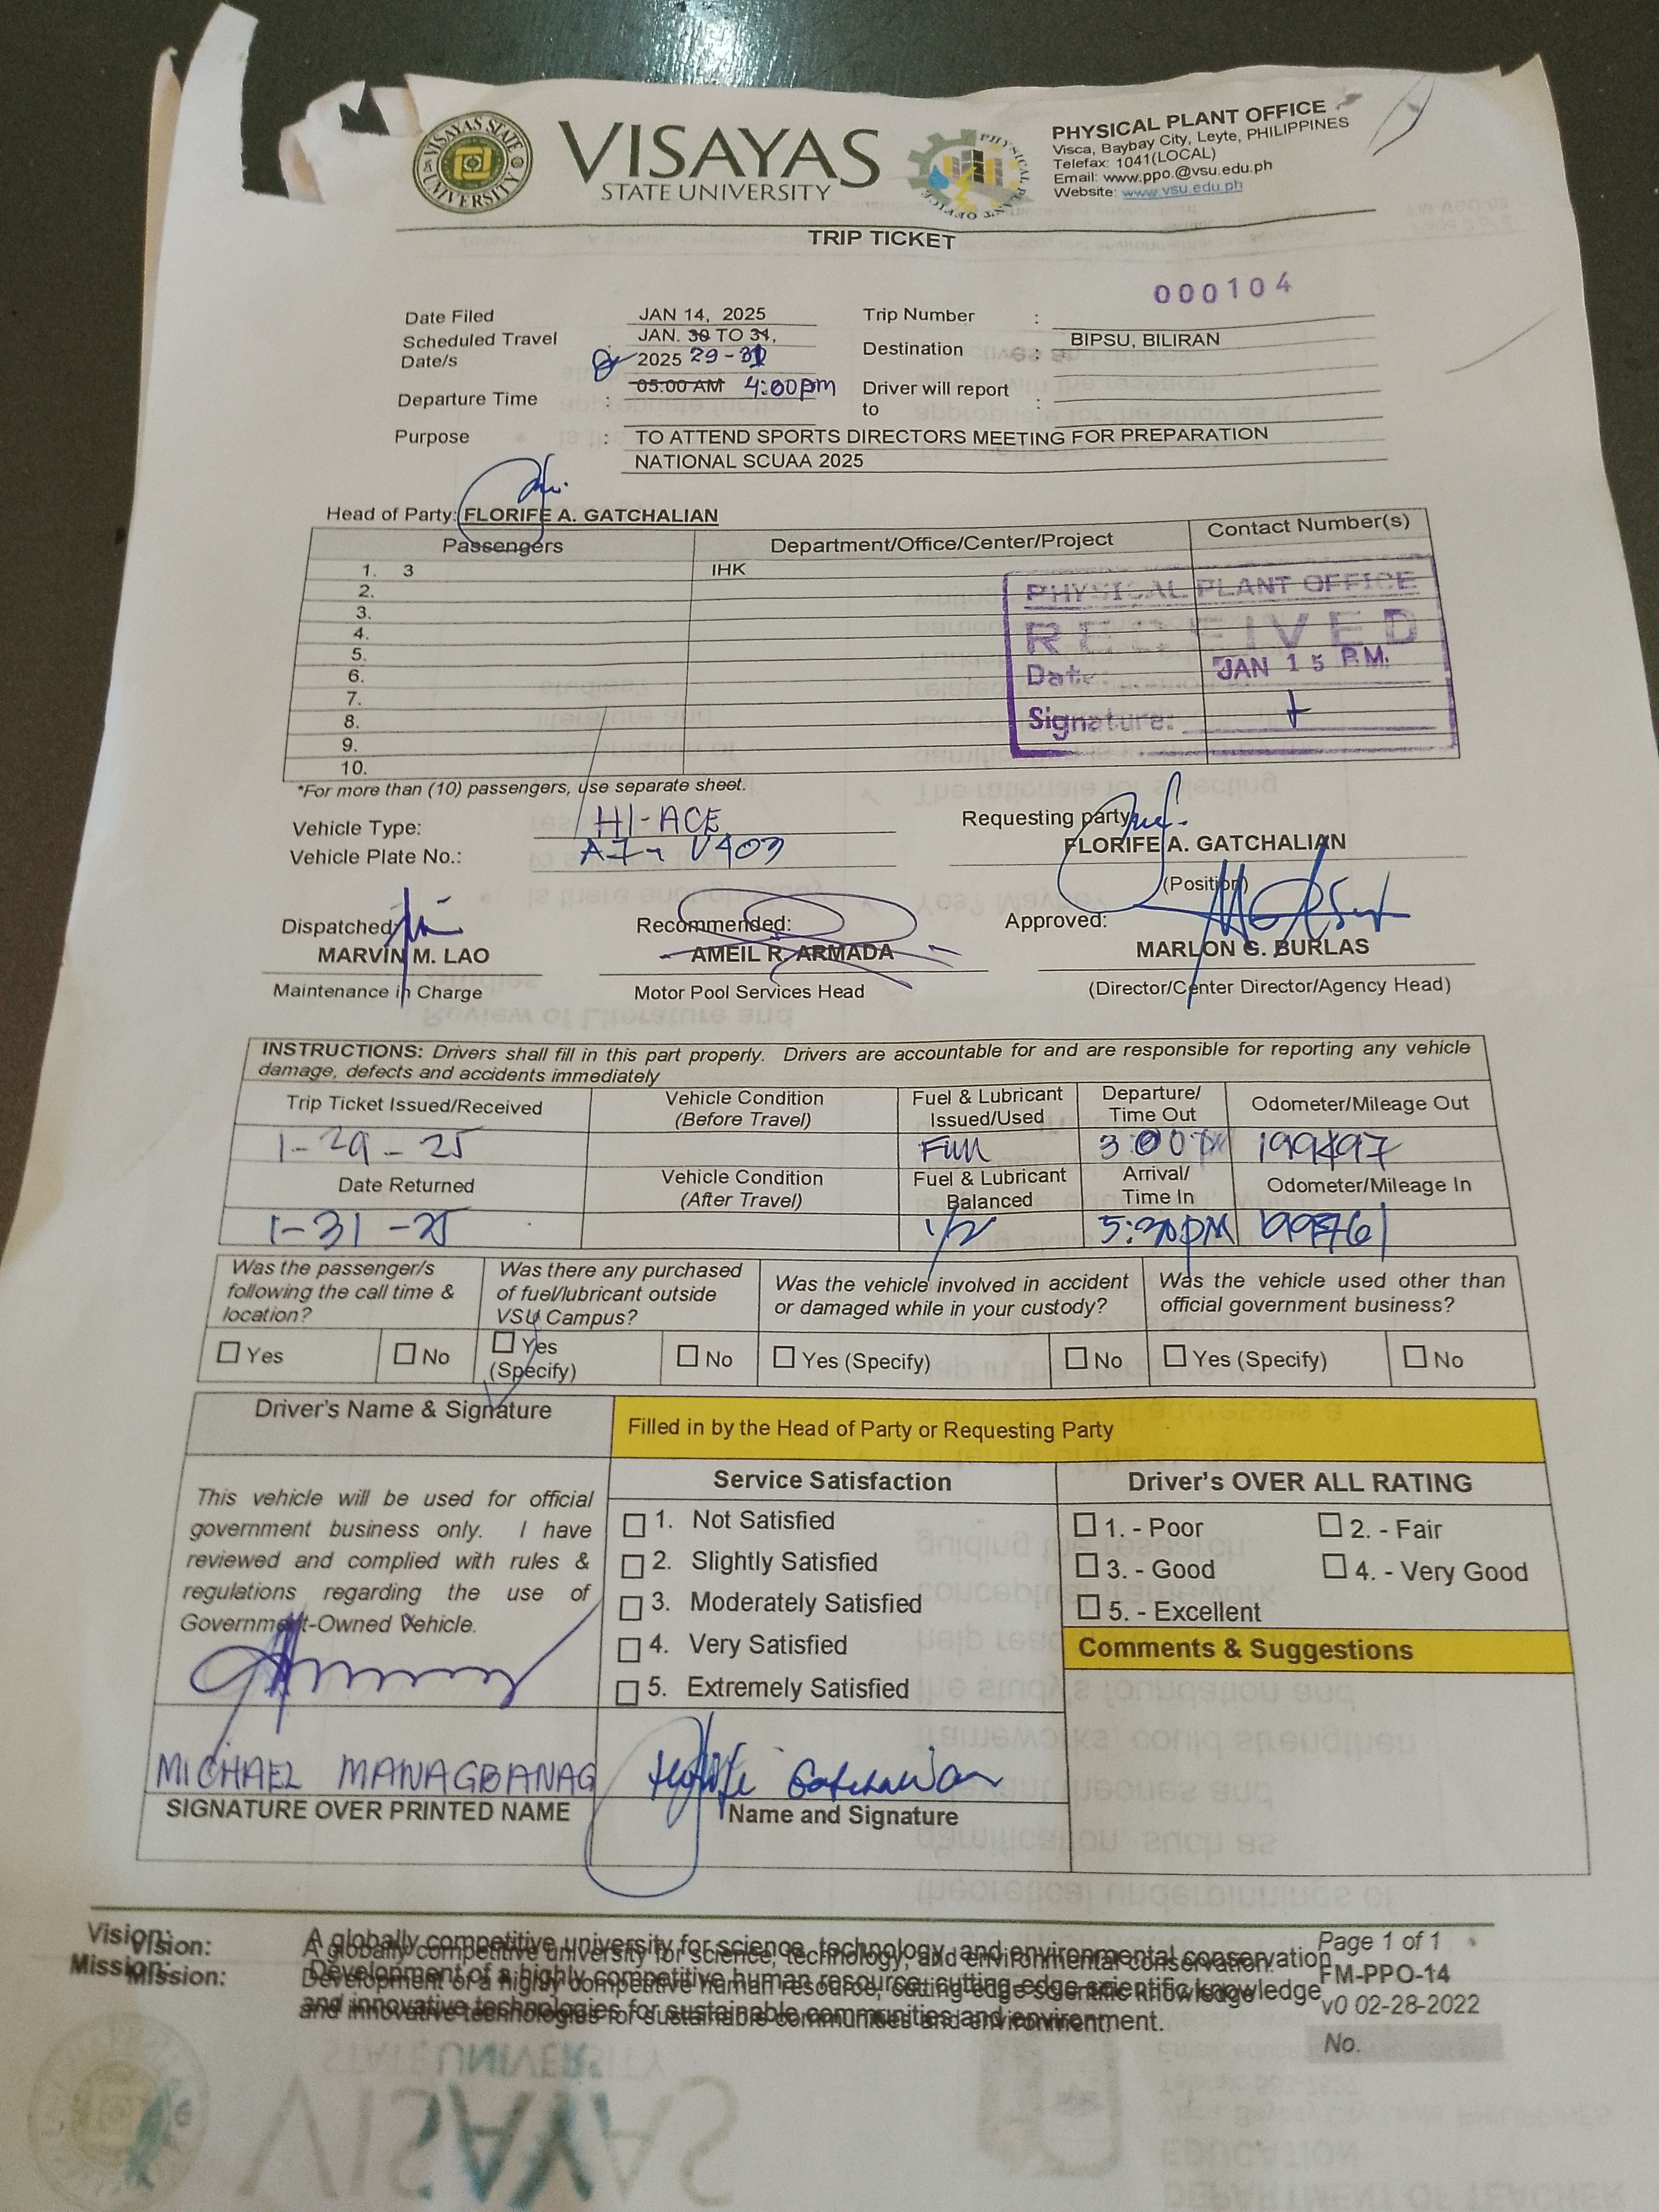 VISAYAS STATE UNIVERSITY
VISAYAS
STATE UNIVERSITY
PHYSICAL PLANT OFFICE
PHYSICAL PLANT OFFICE
Visca, Baybay City, Leyte, PHILIPPINES
Telefax: 1041(LOCAL)
Email: www.ppo.@vsu.edu.ph
Website: www.vsu.edu.ph
TRIP TICKET
000104
Date Filed JAN 14, 2025 Trip Number :
Scheduled Travel Date/s : JAN. 30 TO 31, 2025 29-31 Destination : BIPSU, BILIRAN
Departure Time : 05:00 AM 4:00pm Driver will report to :
Purpose : TO ATTEND SPORTS DIRECTORS MEETING FOR PREPARATION
NATIONAL SCUAA 2025
Head of Party: FLORIFE A. GATCHALIAN
Passengers Department/Office/Center/Project Contact Number(s)
1. 3 IHK
2.
3.
4.
5.
6.
7.
8.
9.
10.
PHYSICAL PLANT OFFICE
RECEIVED
Date: JAN 15 P.M.
Signature:
*For more than (10) passengers, use separate sheet.
Vehicle Type: HI-ACE
Vehicle Plate No.:
Requesting party:
FLORIFE A. GATCHALIAN
(Position)
Dispatched: Recommended: Approved:
MARVIN M. LAO AMEIL R. ARMADA MARLON G. BURLAS
Maintenance in Charge Motor Pool Services Head (Director/Center Director/Agency Head)
INSTRUCTIONS: Drivers shall fill in this part properly. Drivers are accountable for and are responsible for reporting any vehicle
damage, defects and accidents immediately
Trip Ticket Issued/Received Vehicle Condition (Before Travel) Fuel & Lubricant Issued/Used Departure/ Time Out Odometer/Mileage Out
1-29-25 Full 3:00
Date Returned Vehicle Condition (After Travel) Fuel & Lubricant Balanced Arrival/ Time In Odometer/Mileage In
1-31-25 1/2 5:30pm
Was the passenger/s following the call time & location?
Was there any purchased of fuel/lubricant outside VSU Campus?
Was the vehicle involved in accident or damaged while in your custody?
Was the vehicle used other than official government business?
Yes No Yes (Specify) No Yes (Specify) No Yes (Specify) No
Driver's Name & Signature
Filled in by the Head of Party or Requesting Party
This vehicle will be used for official
government business only. I have
reviewed and complied with rules &
regulations regarding the use of
Government-Owned Vehicle.
Service Satisfaction
1. Not Satisfied
2. Slightly Satisfied
3. Moderately Satisfied
4. Very Satisfied
5. Extremely Satisfied
Driver's OVER ALL RATING
1. - Poor 2. - Fair
3. - Good 4. - Very Good
5. - Excellent
Comments & Suggestions
MICHAEL MANAGBANAG
SIGNATURE OVER PRINTED NAME
Florife Gatchalian
Name and Signature
Vision: A globally competitive university for science, technology, and environmental conservation.
Mission: Development of a highly competitive human resource, cutting-edge scientific knowledge
and innovative technologies for sustainable communities and environment.
Page 1 of 1
FM-PPO-14
v0 02-28-2022
No.